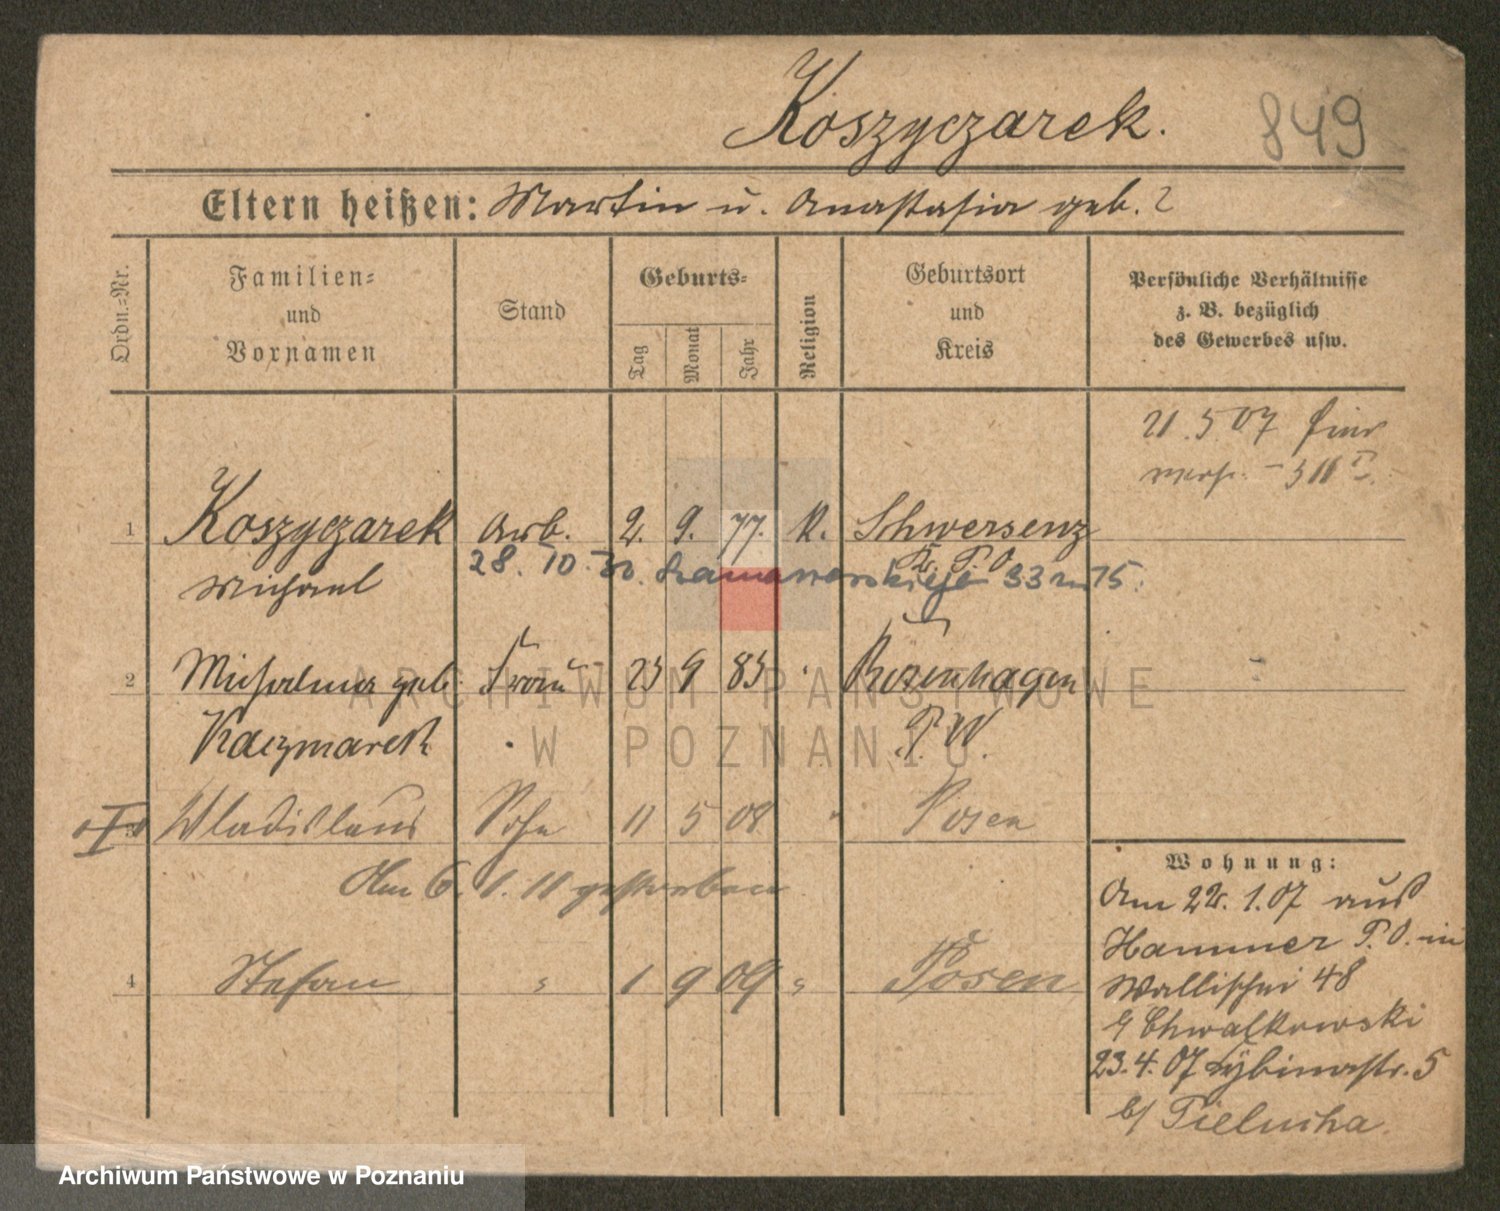 Koszyczarek.
849
Eltern heißen: Martin u. Anastasia geb. ?
Ordn.-Nr.
Familien- und Vornamen
Stand
Geburts-
Tag
Monat
Jahr
Religion
Geburtsort und Kreis
Persönliche Verhältnisse z. B. bezüglich des Gewerbes usw.
21.5.07
1 Koszyczarek Arb. 2. 9. 77. K. Schwersenz
Michael Kr. P. O.
28.10. 33 m 15.
2 Michalina geb. Frau 23 9 83 " Rosenhagen
Kaczmarek P. W.
3 Wladislaus Sohn 11 5 08 " Posen
Am 6. 1. 11 gestorben
4 Stefan " 1 9 09 " Posen
Wohnung:
Am 22.1.07 aus
Hammer P. O. in
Wallischei 48
b/ Chwalkowski
23.4.07 Cybinastr. 5
b/ Pielucha.
ARCHIWUM PAŃSTWOWE
W POZNANIU
Archiwum Państwowe w Poznaniu